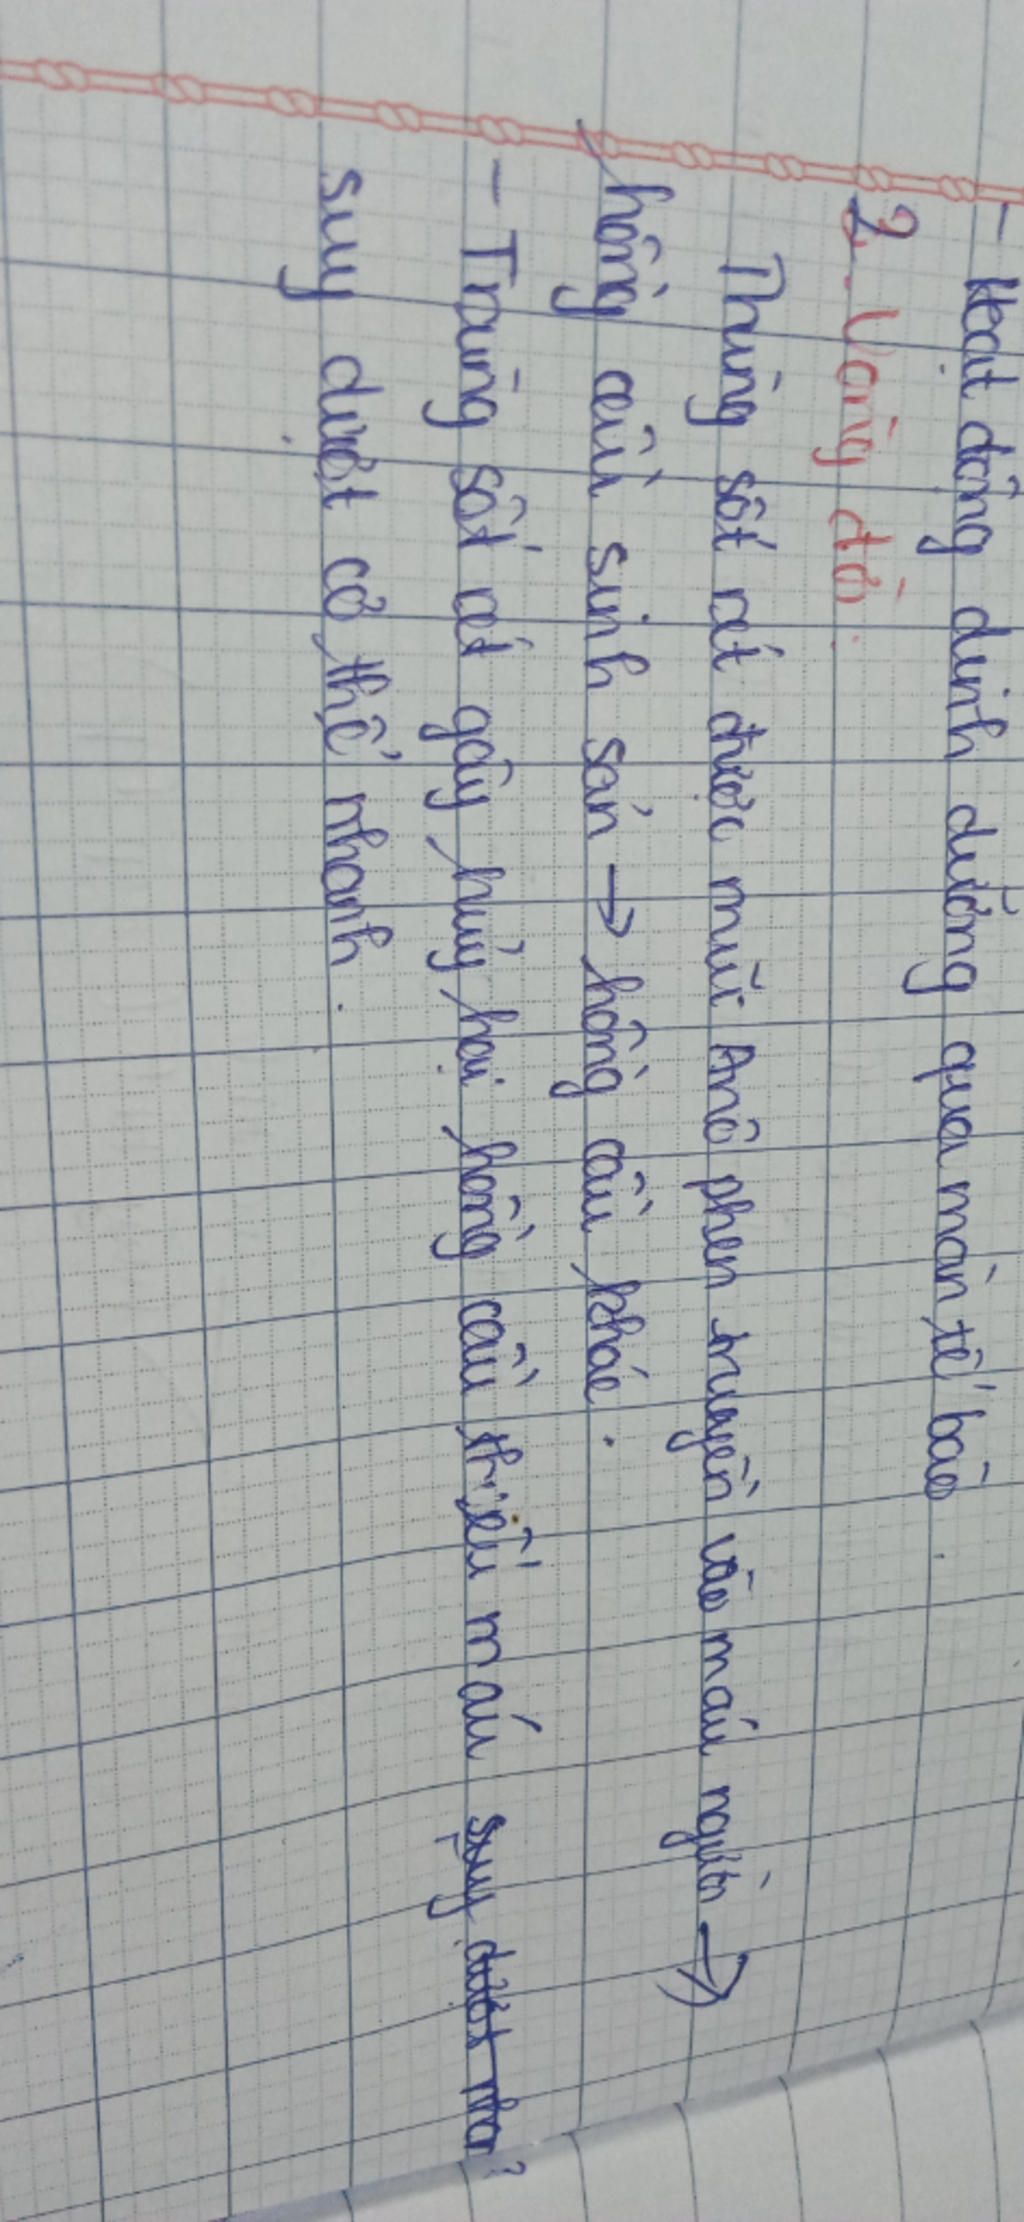 - Hoạt động dinh dưỡng qua màn tế bào.
2. Vòng đời.
Thùng sốt rét được muỗi Anô phen truyền vào máu người →
hồng cầu sinh sản → hồng cầu khác.
- Trùng sốt rét gây hủy hại hồng cầu thiếu máu suy
suy dượt cơ thể nhanh.